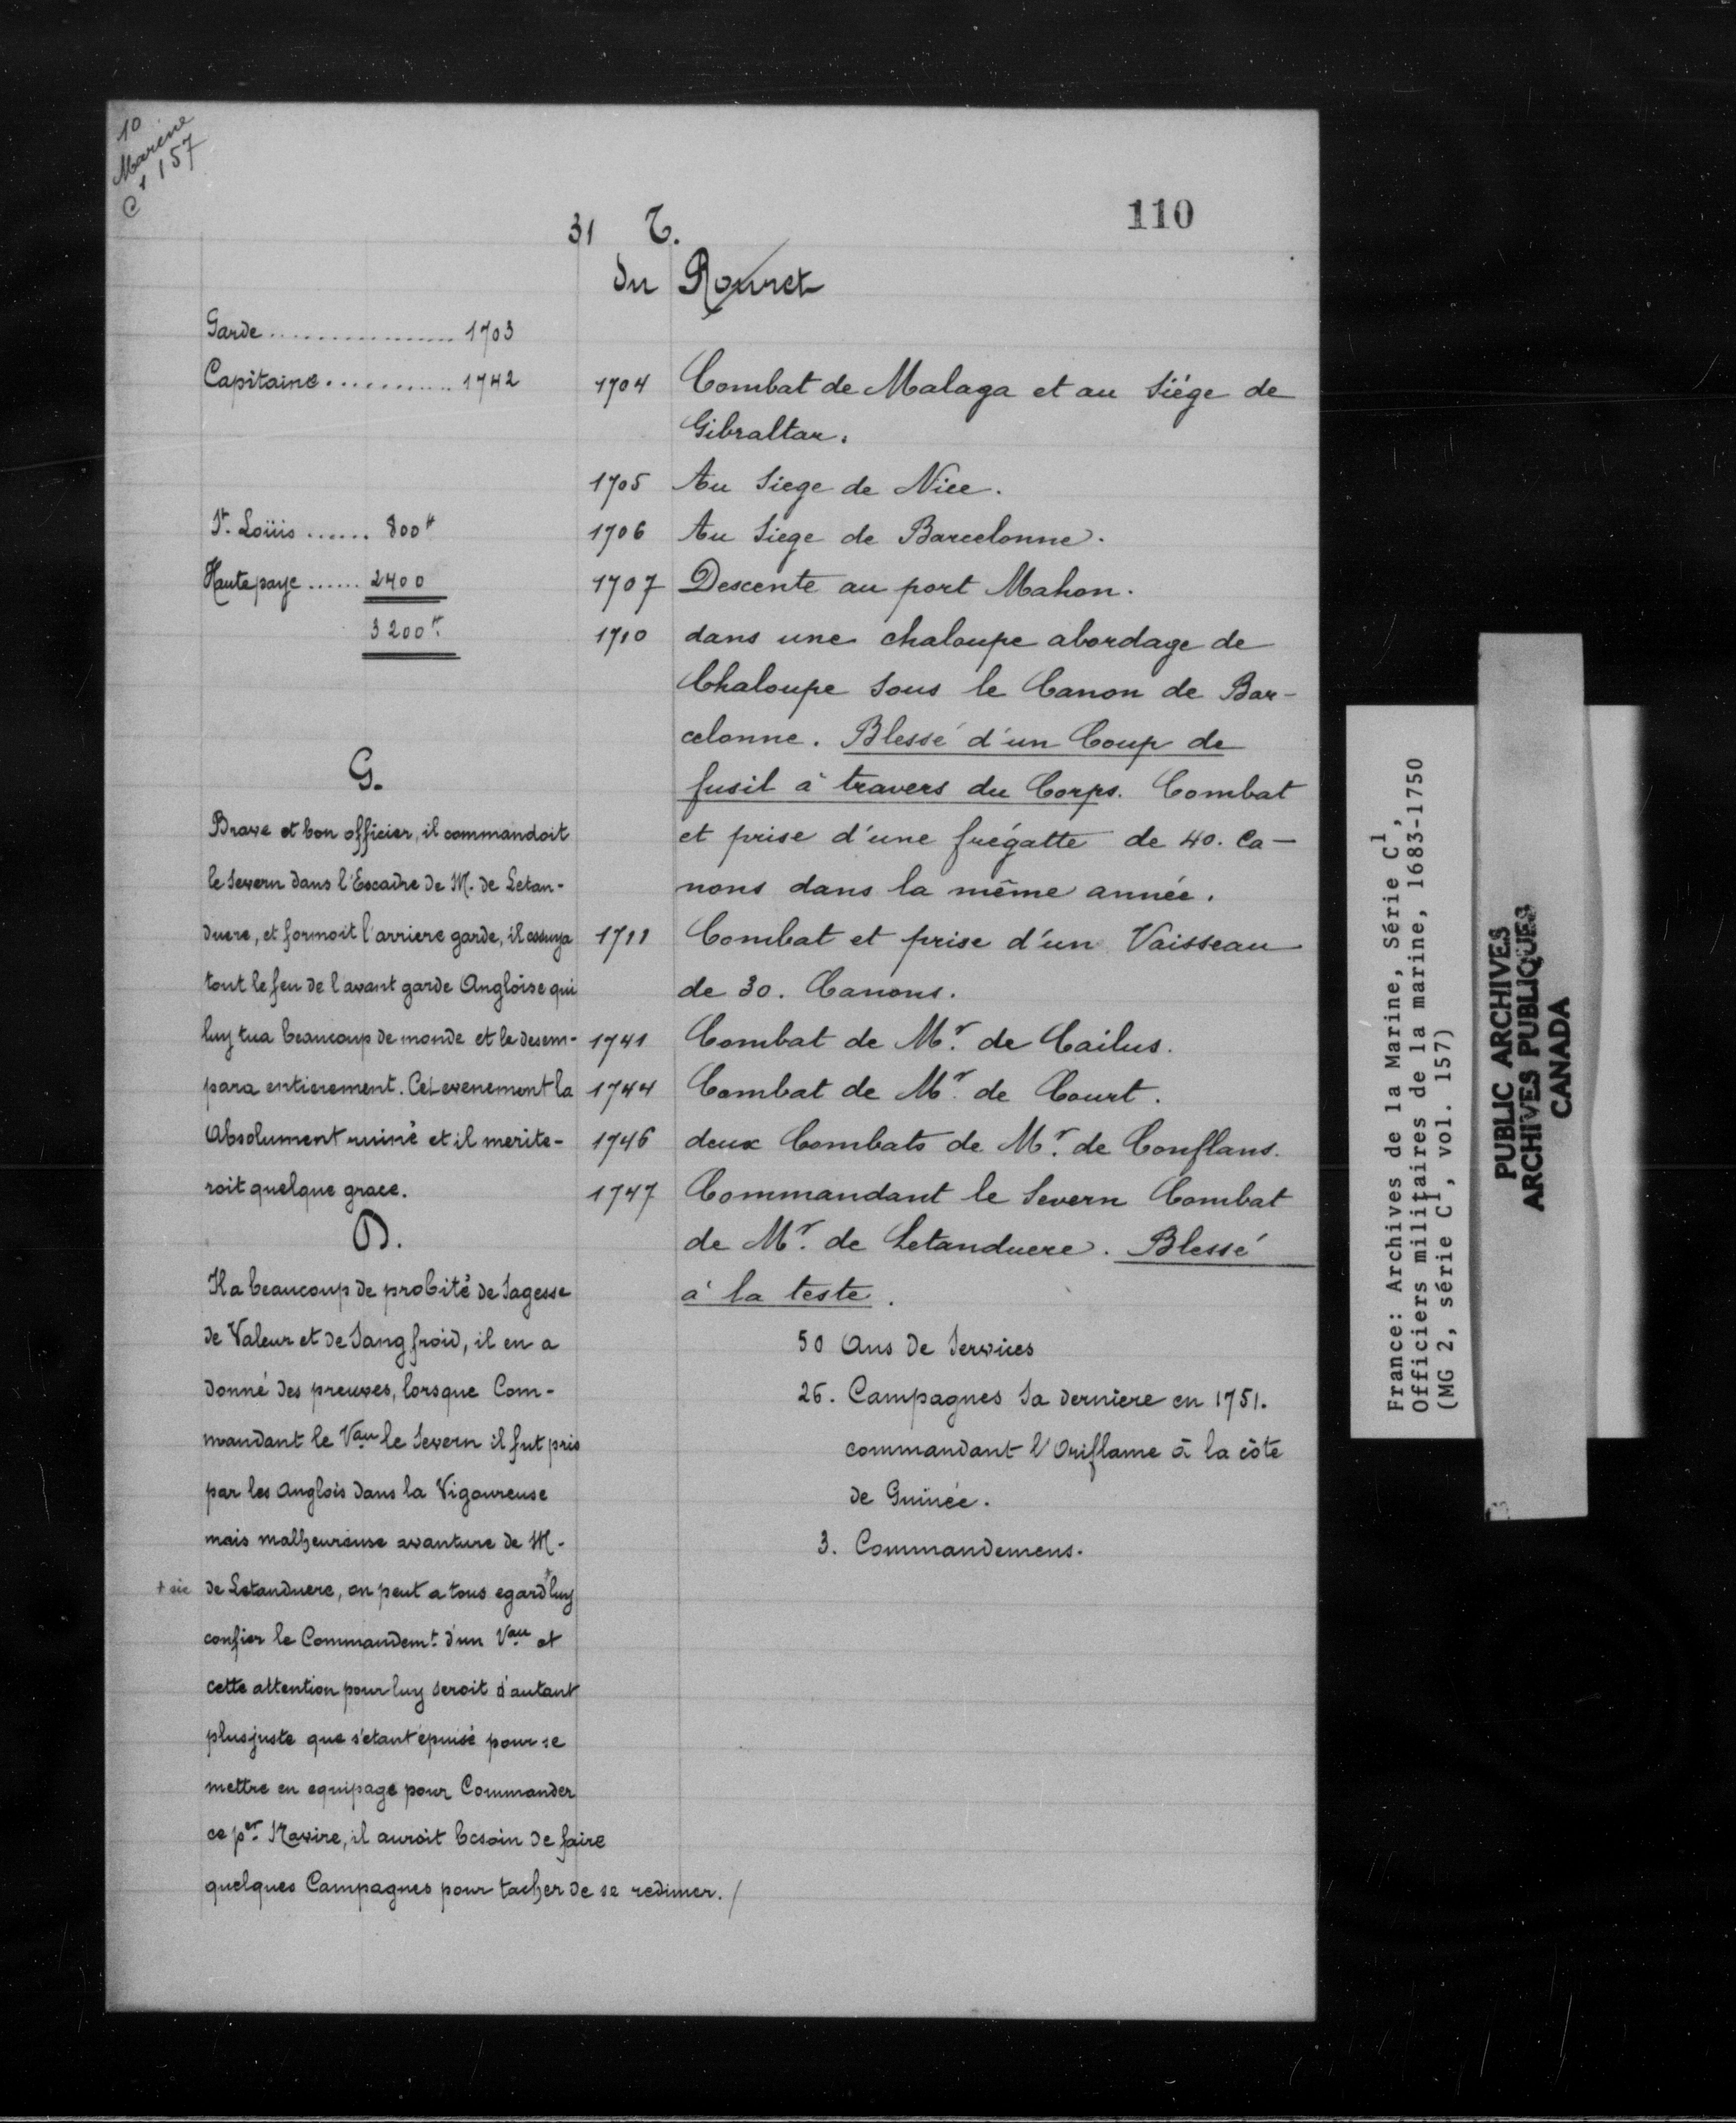 10
Marine
C1 157
110
31 T.
du Rouret
Garde .................. 1703
Capitaine ............ 1742
St. Loüis ...... 800#
Hautepaye ...... 2400
3200#
G.
Brave et bon officier, il commandoit
le Severn dans l'Escadre de M. de Letan-
duere, et formoit l'arriere garde, il essuya
tout le feu de l'avant garde Angloise qui
luy tua beaucoup de monde et le desem-
para entierement. Cet evenement la
Absolument ruiné et il merite-
roit quelque grace.
D.
Il a beaucoup de probité de Sagesse
de Valeur et de Sang froid, il en a
donné des preuves, lorsque Com-
mandant le Vau le Severn il fut pris
par les Anglois dans la Vigoureuse
mais malheureuse avanture de M.
+ sic de Letanduere, on peut a tous egard+ luy
confier le Commandemt. d'un Vau et
cette attention pour luy seroit d'autant
plus juste que s'etant épuisé pour se
mettre en equipage pour Commander
ce per. Navire, il auroit besoin de faire
quelques Campagnes pour tacher de se redimer. /
1704 Combat de Malaga et au Siége de
Gibraltar.
1705 Au Siege de Nice.
1706 Au Siege de Barcelonne.
1707 Descente au port Mahon.
1710 dans une chaloupe abordage de
Chaloupe sous le Canon de Bar-
celonne. Blessé d'un Coup de
fusil à travers du Corps. Combat
et prise d'une frégatte de 40. Ca-
nons dans la même année.
1711 Combat et prise d'un Vaisseau
de 30. Canons.
1741 Combat de Mr. de Cailus.
1744 Combat de Mr. de Court.
1746 deux Combats de Mr. de Conflans.
1747 Commandant le Severn Combat
de Mr. de Letanduere. Blessé
à la teste.
50 Ans de Services
26. Campagnes Sa derniere en 1751.
commandant l'Oriflame à la côte
de Guinée.
3. Commandemens.
France: Archives de la Marine, Série C1,
Officiers militaires de la marine, 1683-1750
(MG 2, série C1, vol. 157)
PUBLIC ARCHIVES
ARCHIVES PUBLIQUES
CANADA